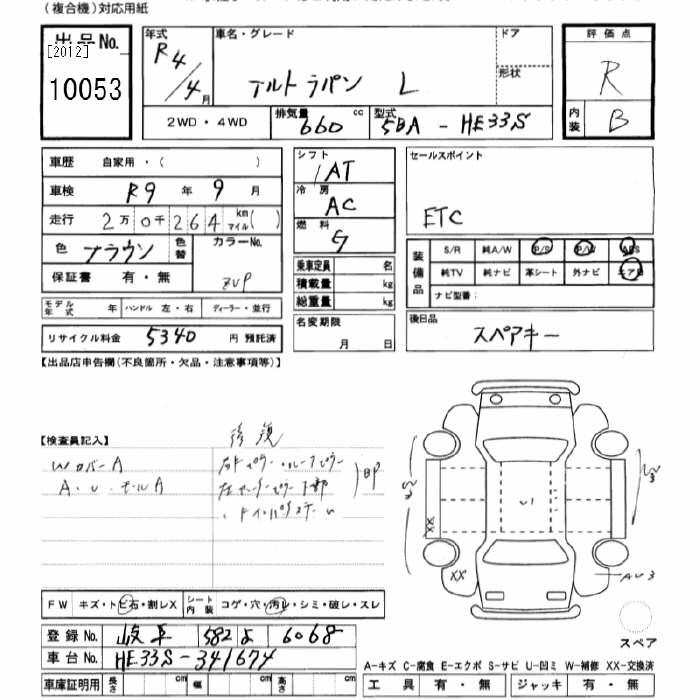 (複合機)対応用紙
出品No. [2012] 10053
年式 R4/4月
車名・グレード アルトラパン L
ドア
形状
評価点 R
内装 B
2WD・4WD
排気量 660 cc
型式 5BA-HE33S
車歴 自家用・( )
車検 R9年 9月
走行 2万0千264 km マイル( )
色 ブラウン 色替
カラーNo. ZVP
保証書 有・無
モデル年式 年 ハンドル 左・右 ディーラー・並行
リサイクル料金 5340 円 預託済
シフト AT
冷房 AC
燃料 G
乗車定員 名
積載量 kg
総重量 kg
名変期限 月 日
セールスポイント
ETC
装備品 S/R 純A/W P/S P/W ABS
純TV 純ナビ 革シート 外ナビ エアB
ナビ型番:
後日品 スペアキー
【出品店申告欄(不良箇所・欠品・注意事項等)】
【検査員記入】
修復
WカバーA
A.U.モールA
BP
U1
XX
XX
AU3
スペア
FW キズ・トビ石・割レX
シート内装 コゲ・穴・汚レ・シミ・破レ・スレ
登録No. 岐阜 582 よ 6068
車台No. HE33S-341674
車庫証明用 長さ 幅 高さ
A-キズ C-腐食 E-エクボ S-サビ U-凹ミ W-補修 XX-交換済
工具 有・無 ジャッキ 有・無